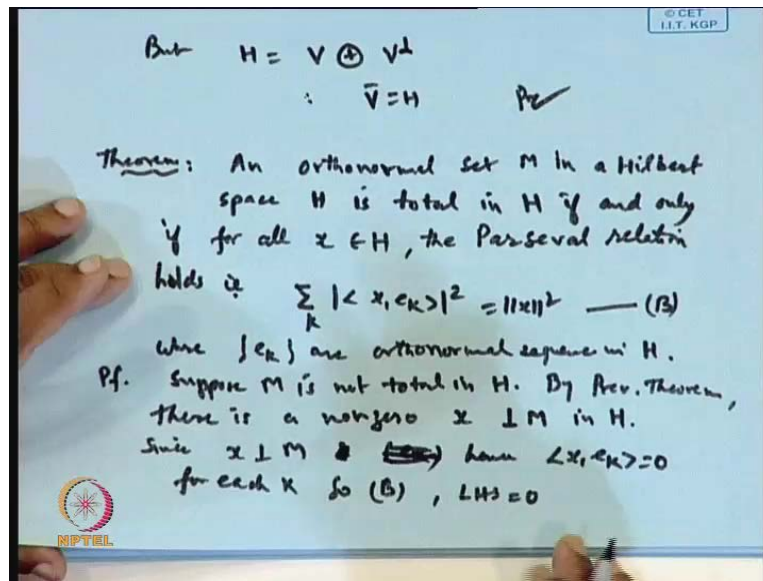 © CET
I.I.T. KGP
But H = V ⊕ V⊥
∴ V̄ = H
Theorem: An orthonormal set M in a Hilbert
space H is total in H if and only
if for all x ∈ H, the Parseval relation
holds ie Σ_k |< x, e_k >|² = ||x||² —— (B)
where {e_k} are orthonormal sequence in H.
Pf. Suppose M is not total in H. By Prev. Theorem,
there is a nonzero x ⊥ M in H.
Since x ⊥ M hence <x, e_k> = 0
for each k So (B), LHS = 0
NPTEL